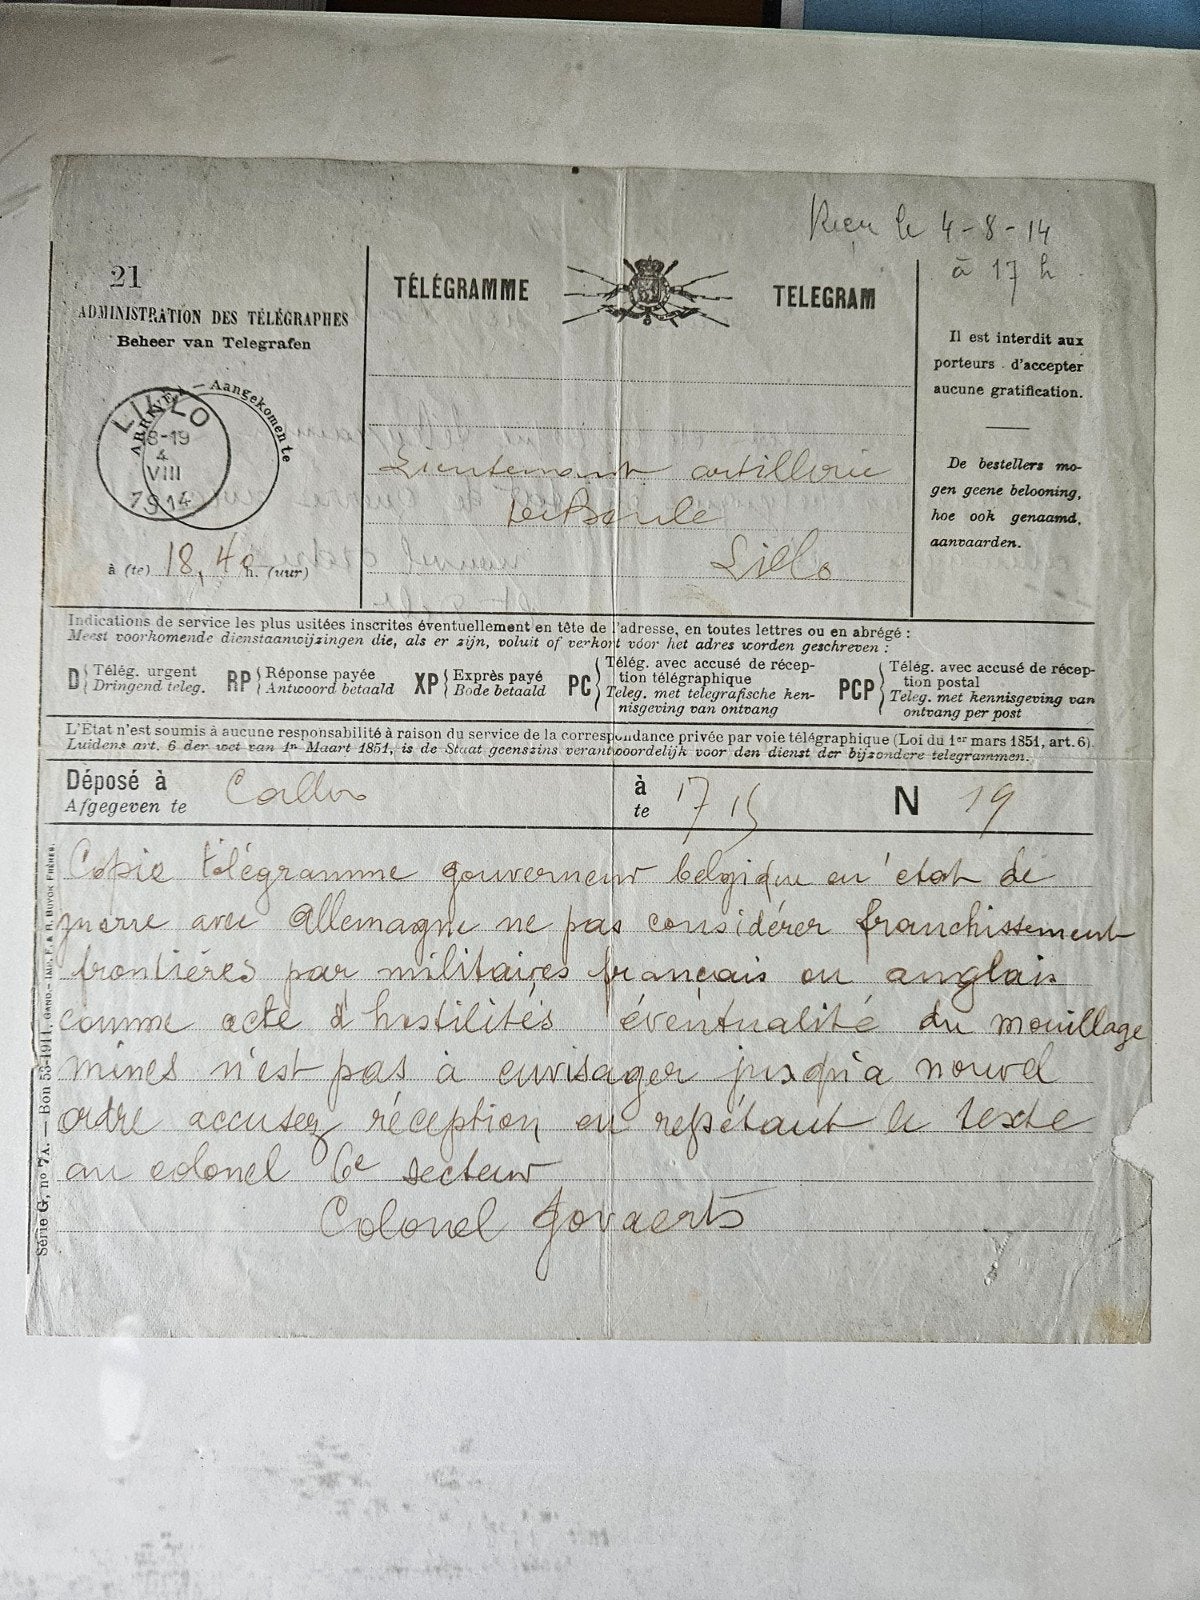 Reçu le 4-8-14
à 17 h
21
ADMINISTRATION DES TÉLÉGRAPHES
Beheer van Telegrafen
TÉLÉGRAMME
TELEGRAM
Il est interdit aux
porteurs d'accepter
aucune gratification.
De bestellers mo-
gen geene belooning,
hoe ook genaamd,
aanvaarden.
— Aangekomen te
LILLO
18-19
4
VIII
1914
à (te) 18,40 h. (uur)
Lieutenant artillerie
Lillo
Indications de service les plus usitées inscrites éventuellement en tête de l'adresse, en toutes lettres ou en abrégé :
Meest voorkomende dienstaanwijzingen die, als er zijn, voluit of verkort vóor het adres worden geschreven :
D Télég. urgent
Dringend teleg.
RP Réponse payée
Antwoord betaald
XP Exprès payé
Bode betaald
PC Télég. avec accusé de récep-
tion télégraphique
Teleg. met telegrafische ken-
nisgeving van ontvang
PCP Télég. avec accusé de récep-
tion postal
Teleg. met kennisgeving van
ontvang per post
L'État n'est soumis à aucune responsabilité à raison du service de la correspondance privée par voie télégraphique (Loi du 1er mars 1851, art. 6).
Luidens art. 6 der wet van 1n Maart 1851, is de Staat geenszins verantwoordelijk voor den dienst der bijzondere telegrammen.
Déposé à Calloo à 17 15 N 19
Afgegeven te te
Copie télégramme gouverneur belgique en état de
guerre avec Allemagne ne pas considérer franchissement
frontières par militaires français ou anglais
comme acte d'hostilités éventualité du mouillage
mines n'est pas à envisager jusqu'a nouvel
ordre accusez réception en repétant le texte
au colonel 6e secteur
Colonel Govaerts
Série G, no 7A. — Bon 53-1911, GAND.— IMP. F. & R. BUYCK FRÈRES.